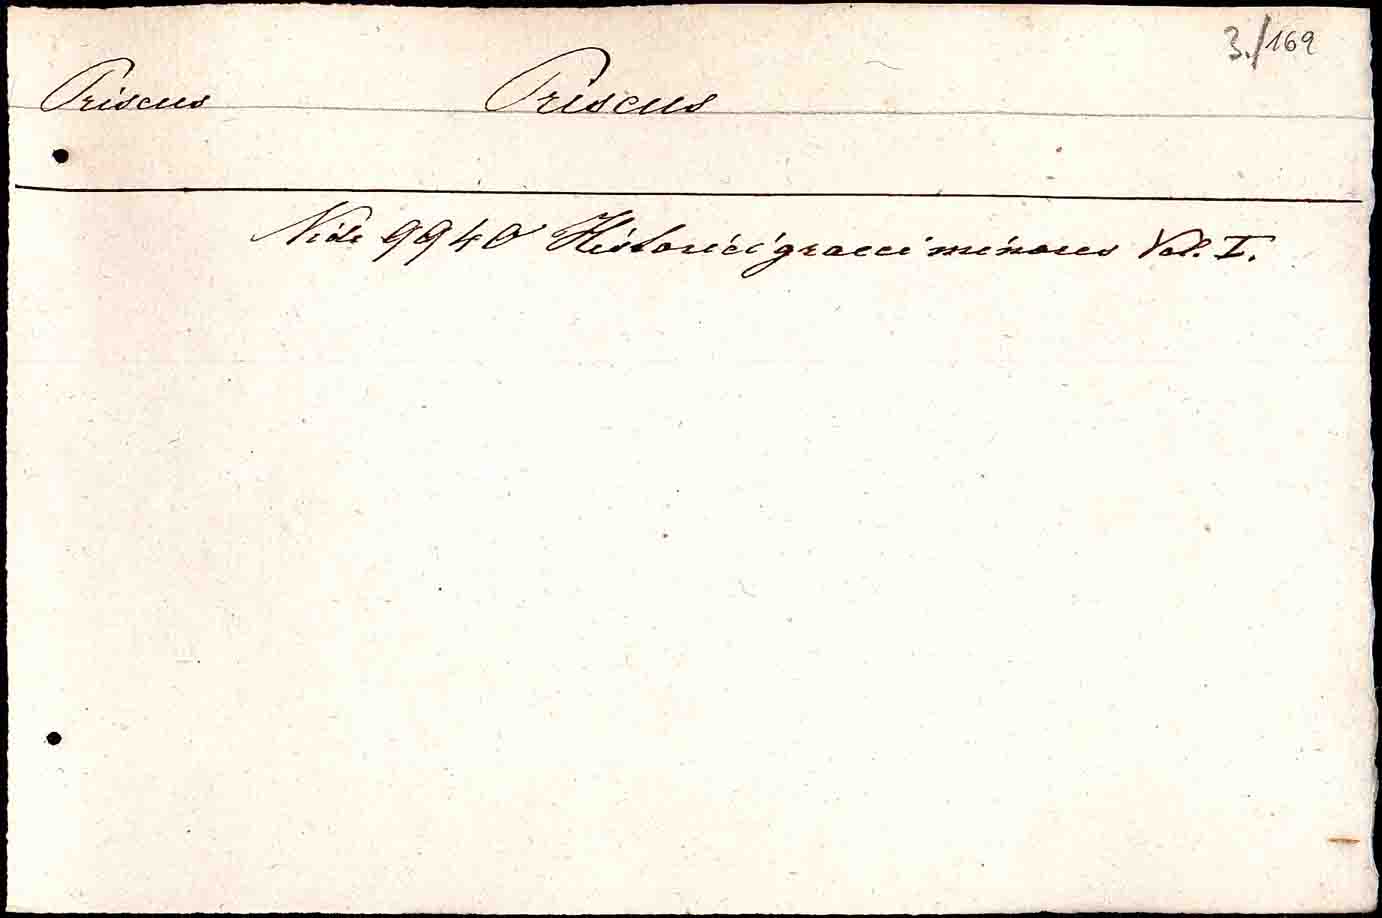 3./169
Priscus Priscus
Vide 9940 Historici graeci minores Vol. I.